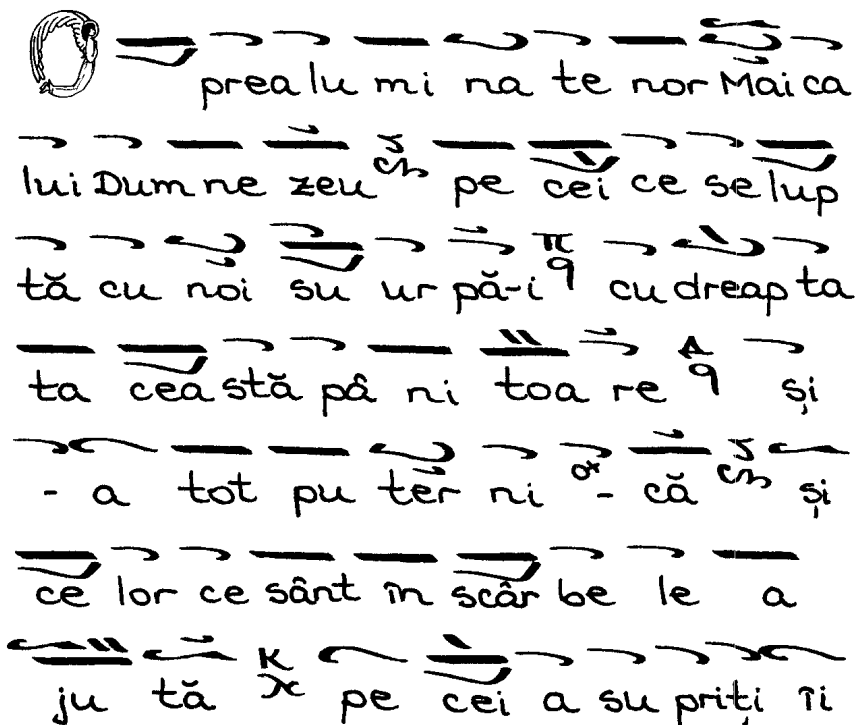 O prea lu mi na te nor Mai ca
lui Dum ne zeu pe cei ce se lup
tă cu noi su ur pă-i cu dreap ta
ta cea stă pâ ni toa re și
- a tot pu ter ni - că și
ce lor ce sânt în scâr be le a
ju tă pe cei a su priți îi